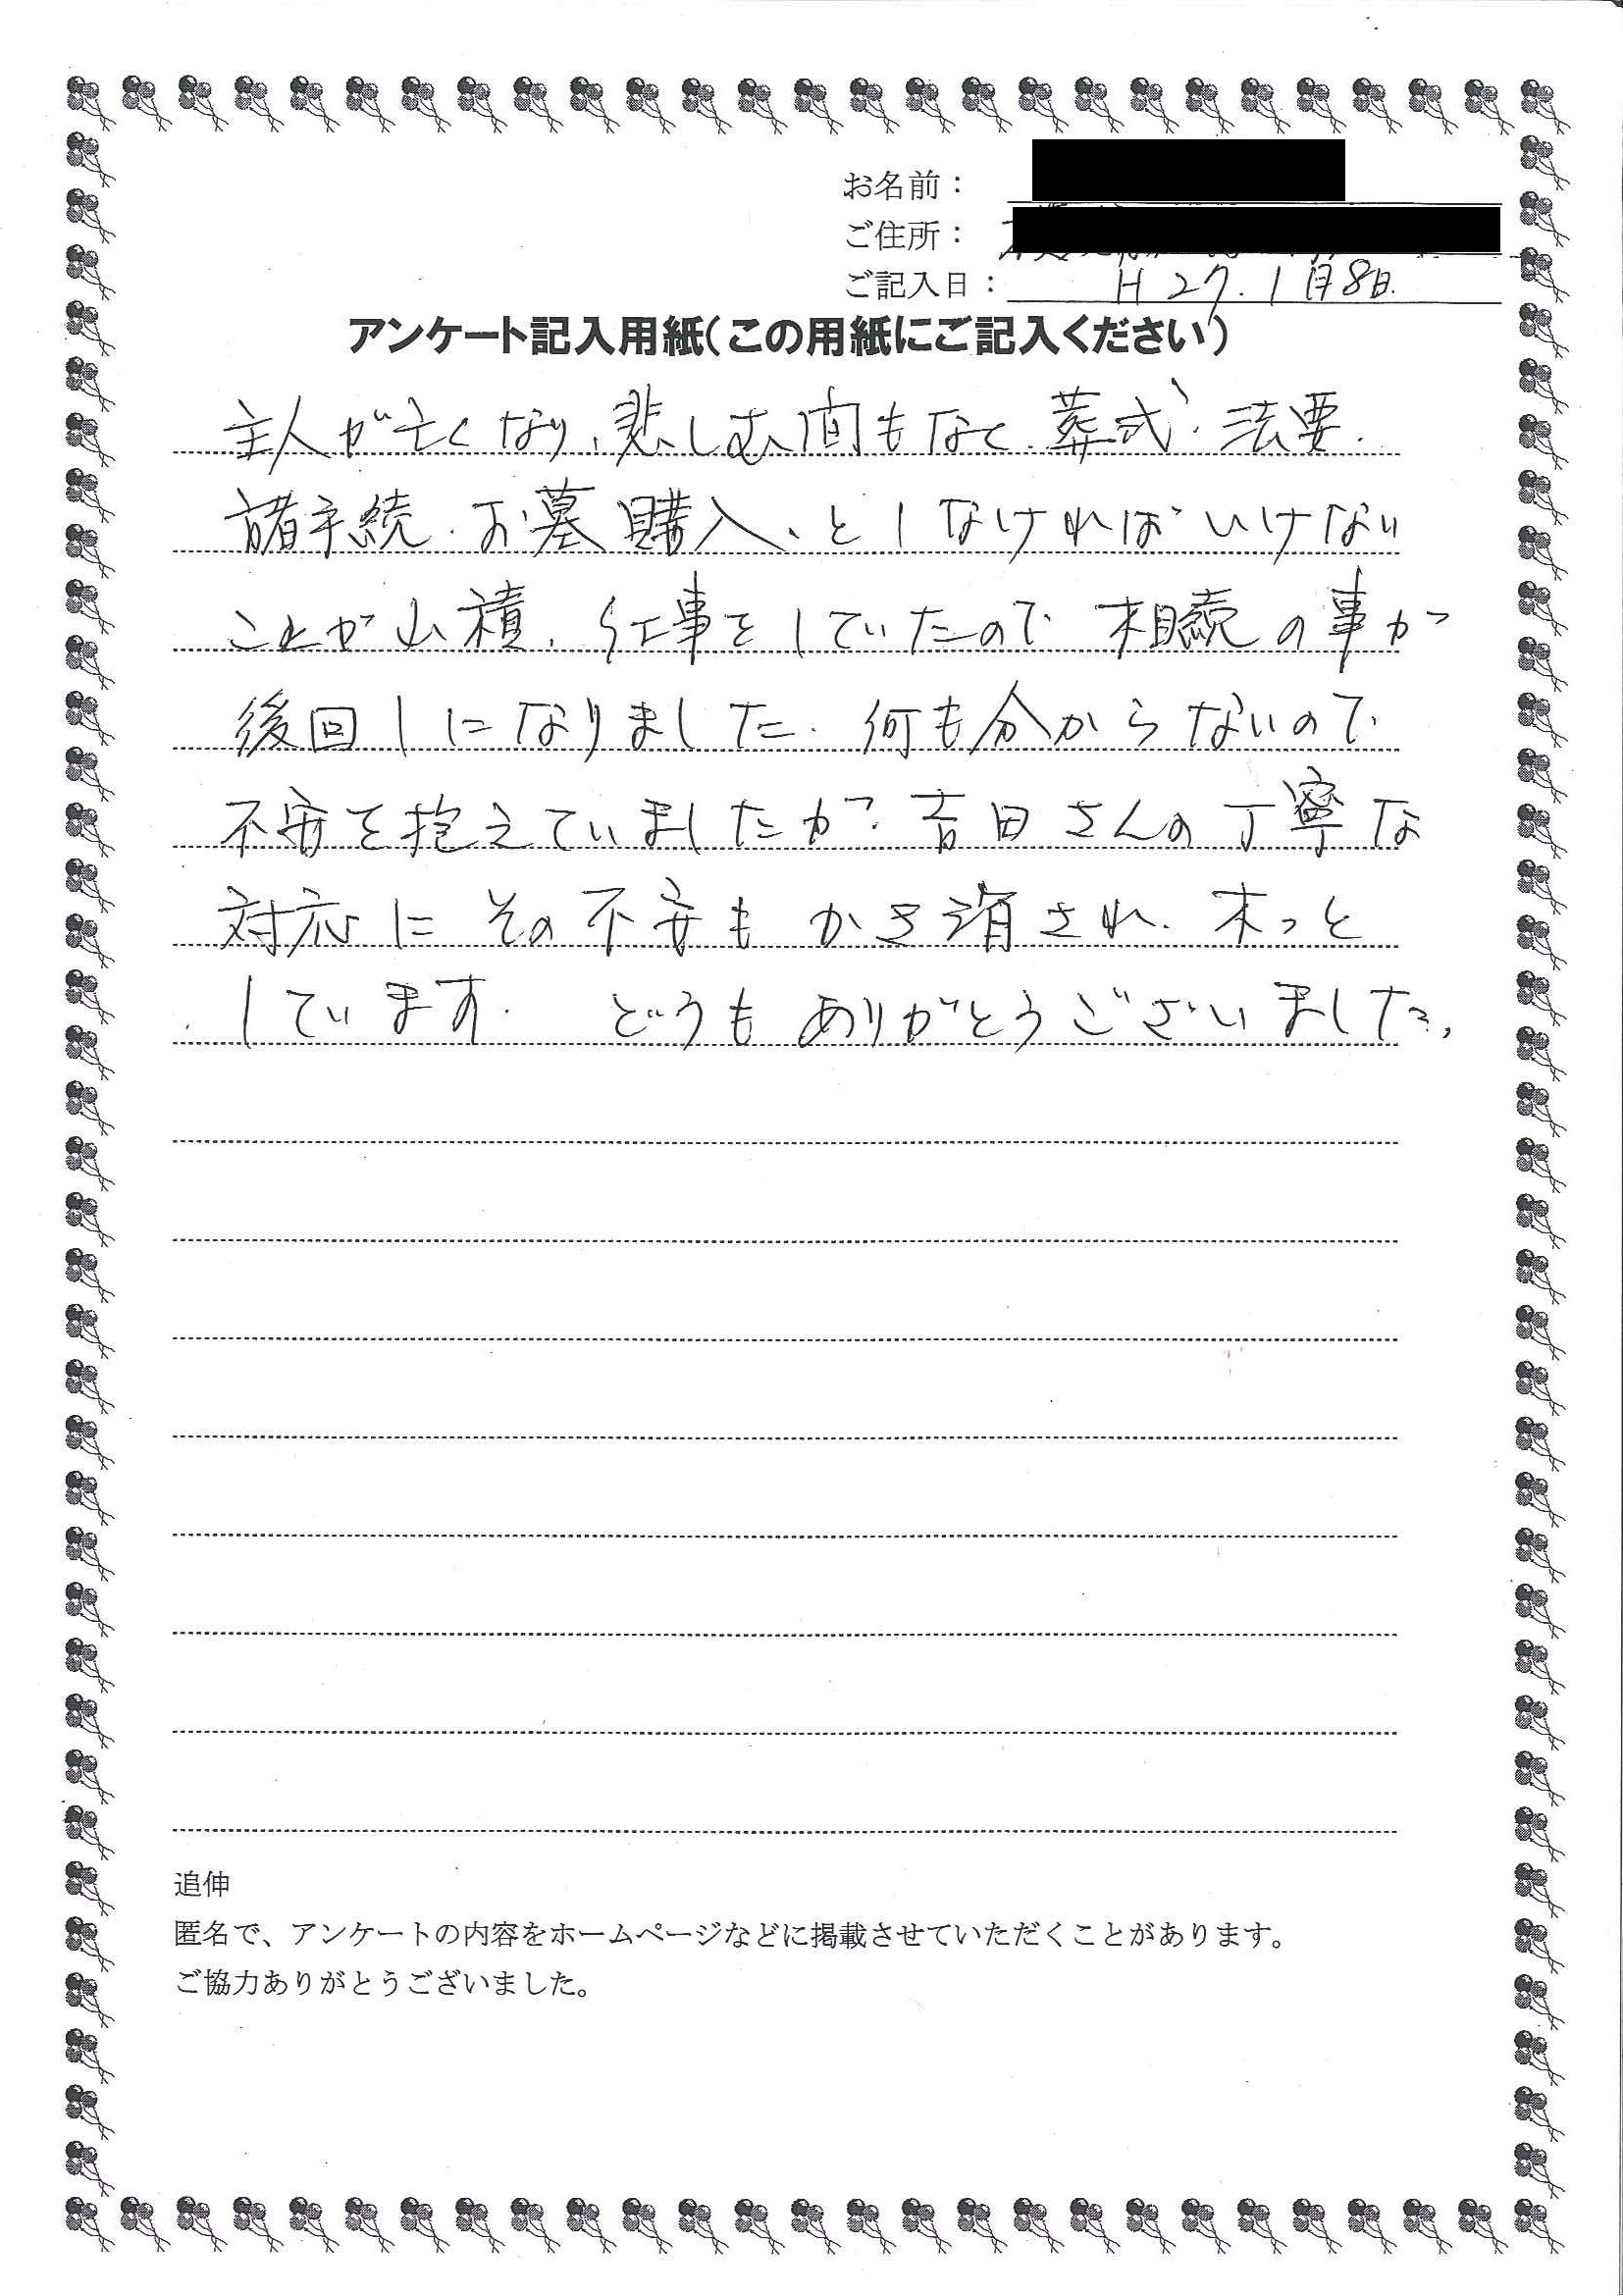 お名前：
ご住所：
ご記入日： H27.1月8日.
アンケート記入用紙（この用紙にご記入ください）
主人が亡くなり、悲しむ間もなく、葬式、法要、
諸手続、お墓購入、としなければいけない
ことが山積、仕事をしていたので相続の事が
後回しになりました。何も分からないので
不安を抱えていましたが、吉田さんの丁寧な
対応にその不安もかき消され、ホっと
しています。 どうもありがとうございました。
追伸
匿名で、アンケートの内容をホームページなどに掲載させていただくことがあります。
ご協力ありがとうございました。